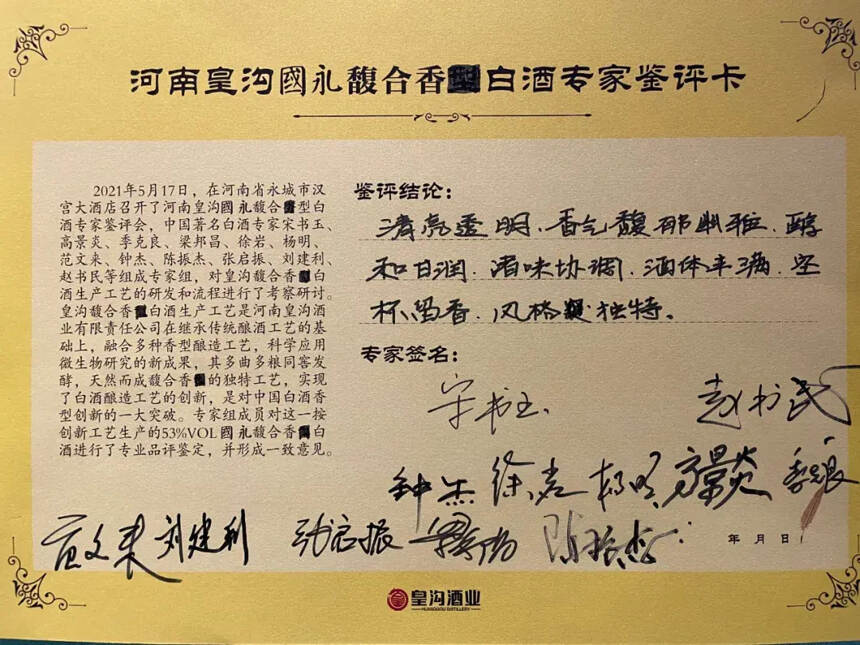 河南皇沟國永馥合香白酒专家鉴评卡
2021年5月17日，在河南省永城市汉
宫大酒店召开了河南皇沟國永馥合型白
酒专家鉴评会，中国著名白酒专家宋书玉、
高景炎、李克良、梁邦昌、徐岩、杨明、
范文来、钟杰、陈振杰、张启振、刘建利、
赵书民等组成专家组，对皇沟馥合香白
酒生产工艺的研发和流程进行了考察研讨。
皇沟馥合香白酒生产工艺是河南皇沟酒
业有限责任公司在继承传统酿酒工艺的基
础上，融合多种香型酿造工艺，科学应用
微生物研究的新成果，其多曲多粮同窖发
酵，天然而成馥合香的独特工艺，实现
了白酒酿造工艺的创新，是对中国白酒香
型创新的一大突破。专家组成员对这一按
创新工艺生产的53%VOL國永馥合香白
酒进行了专业品评鉴定，并形成一致意见。
鉴评结论：
清亮透明、香气馥郁幽雅、醇
和甘润、诸味协调、酒体丰满、空
杯留香、风格独特。
专家签名：
宋书玉 赵书民
钟杰 徐岩 杨明 高景炎 李克良
范文来 刘建利 张启振 梁邦昌 陈振杰
年 月 日
皇沟酒业
HUANGGOU DISTILLERY